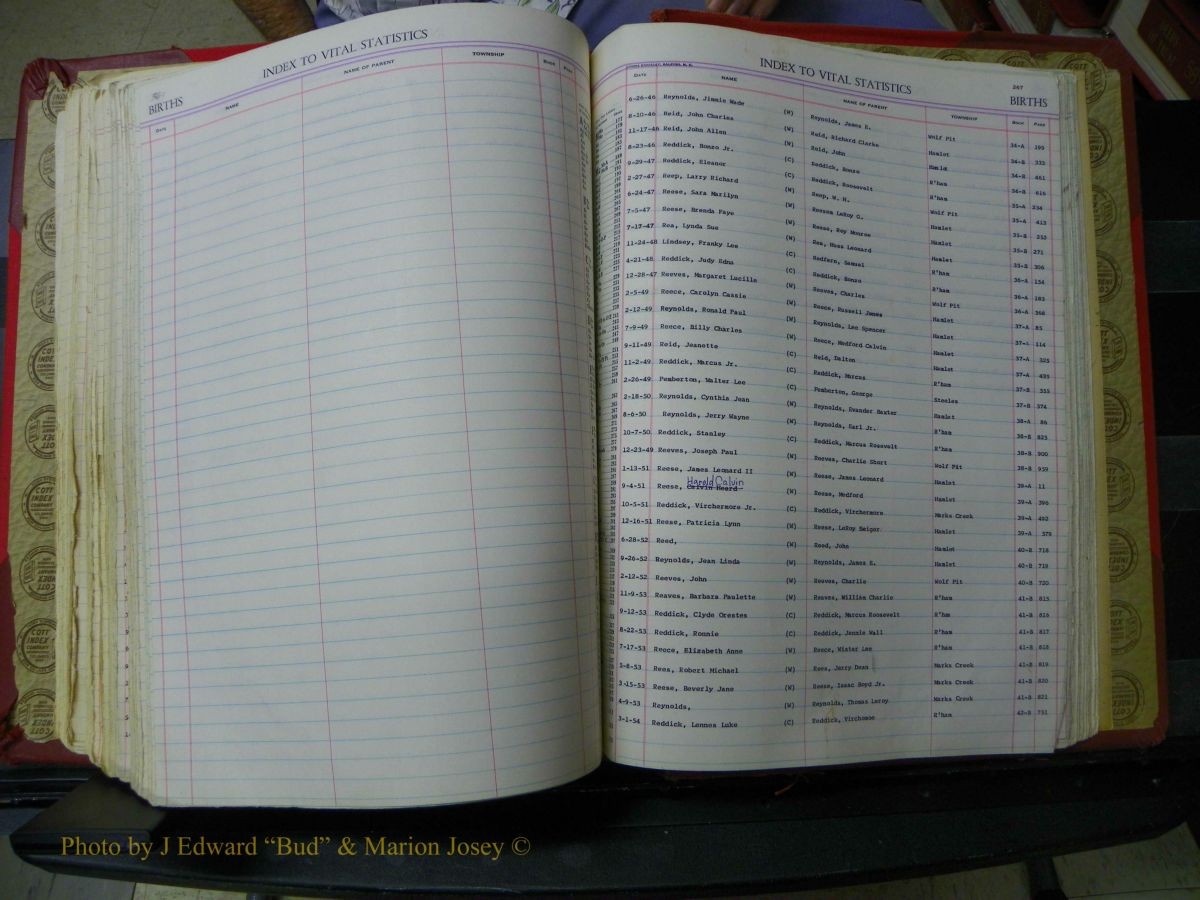 INDEX TO VITAL STATISTICS
BIRTHS
DATE NAME NAME OF PARENT TOWNSHIP BOOK PAGE
INDEX TO VITAL STATISTICS
247
BIRTHS
DATE NAME NAME OF PARENT TOWNSHIP BOOK PAGE
6-26-46 Reynolds, Jimmie Wade (W) Reynolds, James E. Wolf Pit 34-A 199
8-10-46 Reid, John Charles (W) Reid, Richard Clarke Hamlet 34-B 333
11-17-46 Reid, John Allen (W) Reid, John Hamlet 34-B 461
8-23-46 Reddick, Bonzo Jr. (C) Reddick, Bonzo R'ham 34-B 616
9-29-47 Reddick, Eleanor (C) Reddick, Roosevelt R'ham 35-A 234
2-27-47 Reep, Larry Richard (W) Reep, W. H. Wolf Pit 35-A 413
6-24-47 Reese, Sara Marilyn (W) Reese, LeRoy G. Hamlet 35-B 252
7-5-47 Reese, Brenda Faye (W) Reese, Roy Monroe Hamlet 35-B 271
7-17-47 Rea, Lynda Sue (W) Rea, Huss Leonard Hamlet 35-B 306
11-24-48 Lindsey, Franky Lee (C) Redfern, Samuel R'ham 36-A 154
4-21-48 Reddick, Judy Edna (C) Reddick, Bonzo R'ham 36-A 183
12-28-47 Reeves, Margaret Lucille (W) Reeves, Charles Wolf Pit 36-A 368
2-5-49 Reece, Carolyn Cassie (W) Reece, Russell James Hamlet 37-A 85
2-12-49 Reynolds, Ronald Paul (W) Reynolds, Leo Spencer Hamlet 37-A 114
7-9-49 Reece, Billy Charles (W) Reece, Medford Calvin Hamlet 37-A 325
9-11-49 Reid, Jeanette (C) Reid, Dalton Hamlet 37-A 435
11-2-49 Reddick, Marcus Jr. (C) Reddick, Marcus R'ham 37-B 555
2-26-49 Pemberton, Walter Lee (C) Pemberton, George Steeles 37-B 374
2-18-50 Reynolds, Cynthia Jean (W) Reynolds, Evander Baxter Hamlet 38-A 86
8-6-50 Reynolds, Jerry Wayne (W) Reynolds, Earl Jr. R'ham 38-B 825
10-7-50 Reddick, Stanley (C) Reddick, Marcus Roosevelt R'ham 38-B 900
12-23-49 Reeves, Joseph Paul (W) Reeves, Charlie Short Wolf Pit 38-B 939
1-13-51 Reese, James Leonard II (W) Reese, James Leonard Hamlet 39-A 11
Harold Calvin
9-4-51 Reese, Calvin Heard (W) Reese, Medford Hamlet 39-A 396
10-5-51 Reddick, Virchermore Jr. (C) Reddick, Virchermore Marks Creek 39-A 492
12-16-51 Reese, Patricia Lynn (W) Reese, LeRoy Geigor Hamlet 39-A 578
6-28-52 Reed, (W) Reed, John Hamlet 40-B 718
9-26-52 Reynolds, Jean Linda (W) Reynolds, James E. Hamlet 40-B 719
2-12-52 Reeves, John (W) Reeves, Charlie Wolf Pit 40-B 720
11-9-53 Reaves, Barbara Paulette (W) Reaves, William Charlie R'ham 41-B 815
9-12-53 Reddick, Clyde Orestes (C) Reddick, Marcus Roosevelt R'hm 41-B 816
8-22-53 Reddick, Ronnie (C) Reddick, Jennie Wall R'ham 41-B 817
7-17-53 Reece, Elizabeth Anne (W) Reece, Winter Lee R'ham 41-B 818
5-8-53 Rees, Robert Michael (W) Rees, Jerry Dean Marks Creek 41-B 819
3-15-53 Reese, Beverly Jane (W) Reese, Isaac Boyd Jr. Marks Creek 41-B 820
4-9-53 Reynolds, (W) Reynolds, Thomas Leroy Marks Creek 41-B 821
3-1-54 Reddick, Lennos Luke (C) Reddick, Virchomoe R'ham 42-B 751
COTT INDEX COMPANY
Photo by J Edward “Bud” & Marion Josey ©